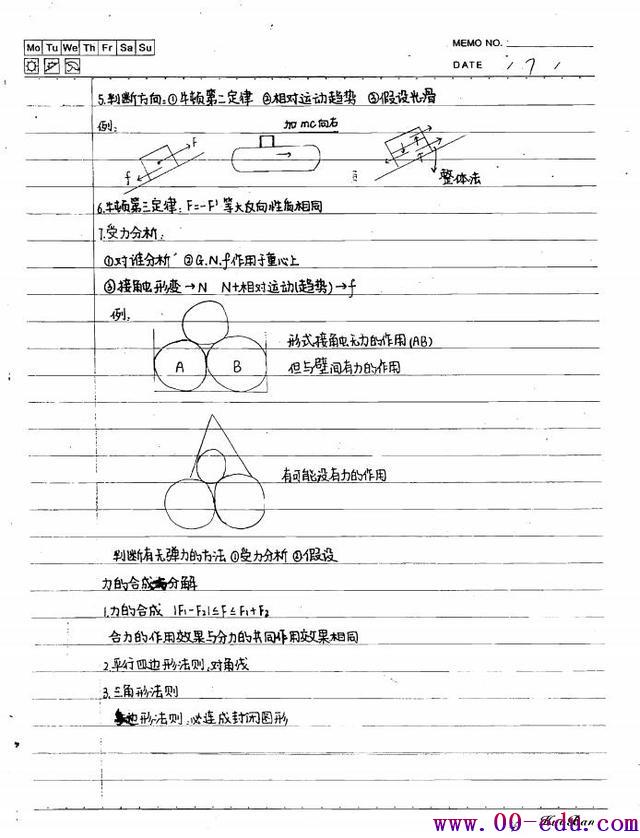 Mo Tu We Th Fr Sa Su
MEMO NO.
DATE / 7 /
5.判断方向:①牛顿第二定律 ②相对运动趋势 ③假设光滑
例:
加mc向右
F
f
整体法
6.牛顿第三定律:F=-F' 等大反向性质相同
7.受力分析:
①对谁分析 ②G.N.f作用于重心上
③接触电形变→N N+相对运动(趋势)→f
例:
A B
形式接触电无力的作用(AB)
但与壁间有力的作用
有可能没有力的作用
判断有无弹力的方法 ①受力分析 ②假设
力的合成与分解
1.力的合成 |F1-F2|≤F≤F1+F2
合力的作用效果与分力的共同作用效果相同
2.平行四边形法则,对角线
3.三角形法则
边形法则,必连成封闭图形
www.00-edu.com